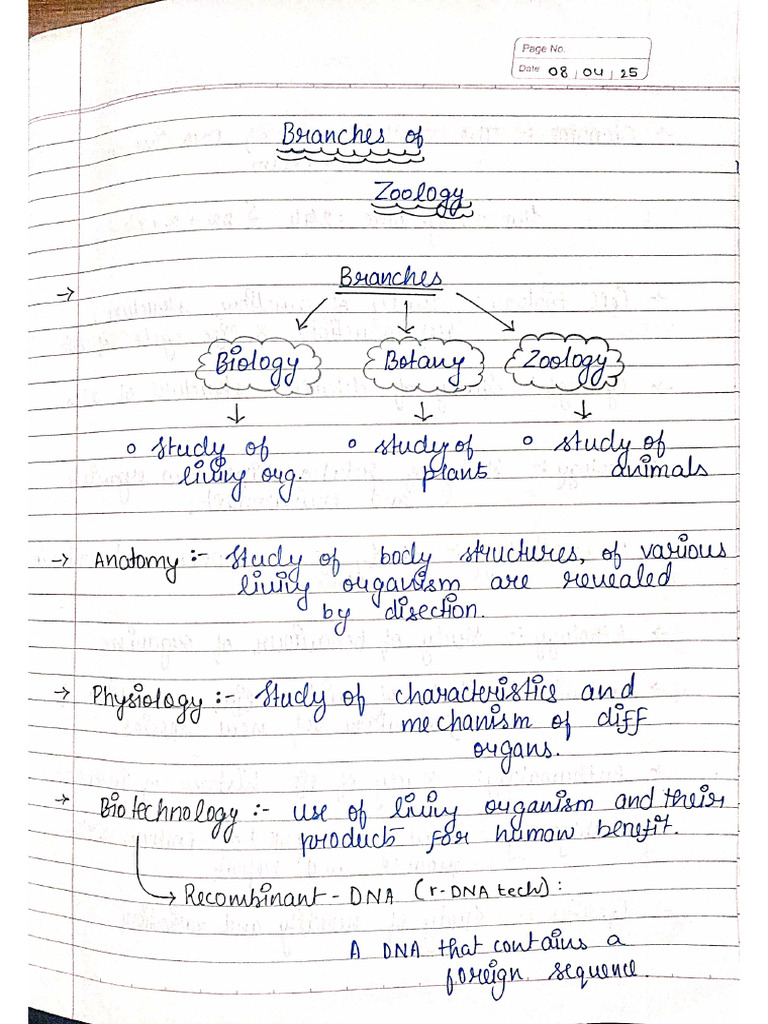 Page No.
Date 08 / 04 / 25
Branches of
Zoology
→ Branches
Biology Botany Zoology
o study of o study of o study of
living org. plant animals
→ Anatomy :- Study of body structures, of various
living organism are revealed
by disection.
→ Physiology :- Study of characteristics and
mechanism of diff
organs.
→ Biotechnology :- use of living organism and their
products for human benefit.
→ Recombinant - DNA (r-DNA tech) :
A DNA that contains a
foreign sequence.